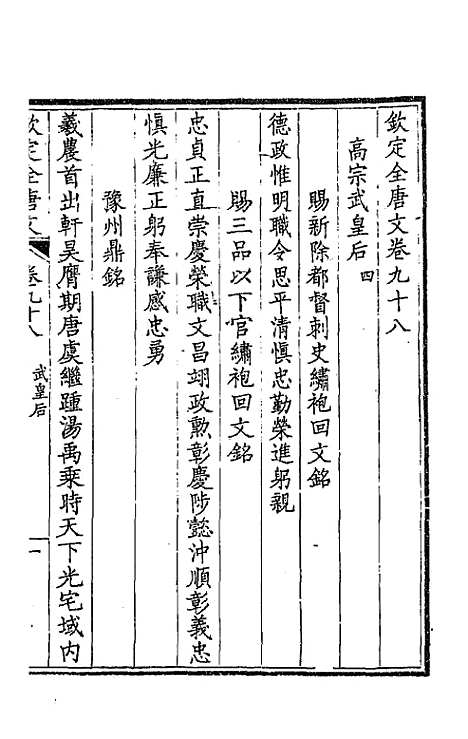 欽定全唐文卷九十八
高宗武皇后四
賜新除都督刺史繡袍回文銘
德政惟明職令思平清慎忠勤榮進躬親
賜三品以下官繡袍回文銘
忠貞正直崇慶榮職文昌翊政勲彰慶陟懿沖順彰義忠
慎光廉正躬奉謙感忠勇
豫州鼎銘
羲農首出軒昊膺期唐虞繼踵湯禹乘時天下光宅域內
欽定全唐文 卷九十八 武皇后 一